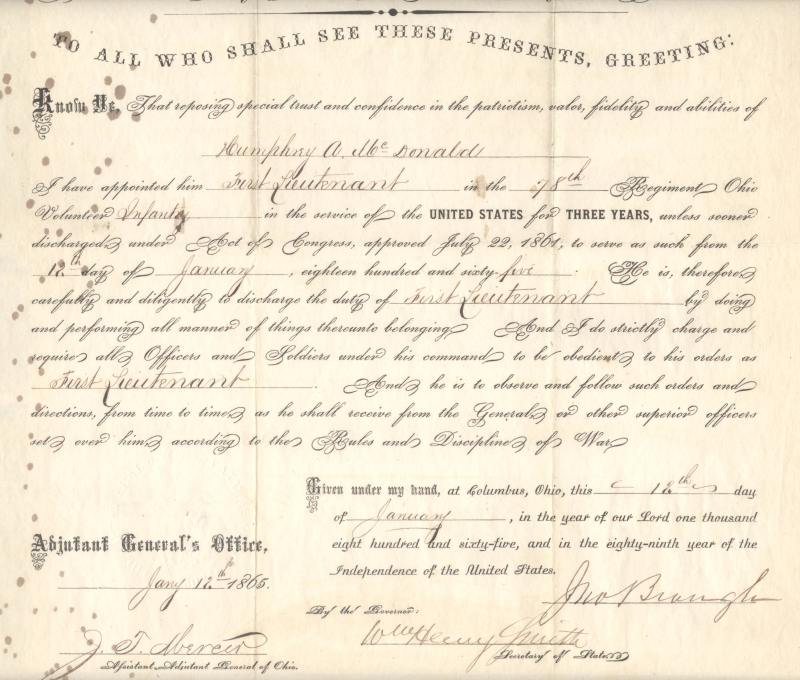 TO ALL WHO SHALL SEE THESE PRESENTS, GREETING:
Know Ye, That reposing special trust and confidence in the patriotism, valor, fidelity and abilities of
Humphrey A. McDonald
I have appointed him First Lieutenant in the 78th Regiment Ohio
Volunteer Infantry in the service of the UNITED STATES for THREE YEARS, unless sooner
discharged under Act of Congress, approved July 22, 1861, to serve as such from the
12th day of January, eighteen hundred and sixty-five. He is, therefore,
carefully and diligently to discharge the duty of First Lieutenant by doing
and performing all manner of things thereunto belonging. And I do strictly charge and
require all Officers and Soldiers under his command to be obedient to his orders as
First Lieutenant. And he is to observe and follow such orders and
directions, from time to time, as he shall receive from the General, or other superior officers
set over him, according to the Rules and Discipline of War.
Given under my hand, at Columbus, Ohio, this 12th day
of January, in the year of our Lord one thousand
eight hundred and sixty-five, and in the eighty-ninth year of the
Independence of the United States.
Jno Brough
By the Governor:
Wm Henry Smith
Secretary of State
Adjutant General's Office,
Jany 12th 1865.
Assistant Adjutant General of Ohio.